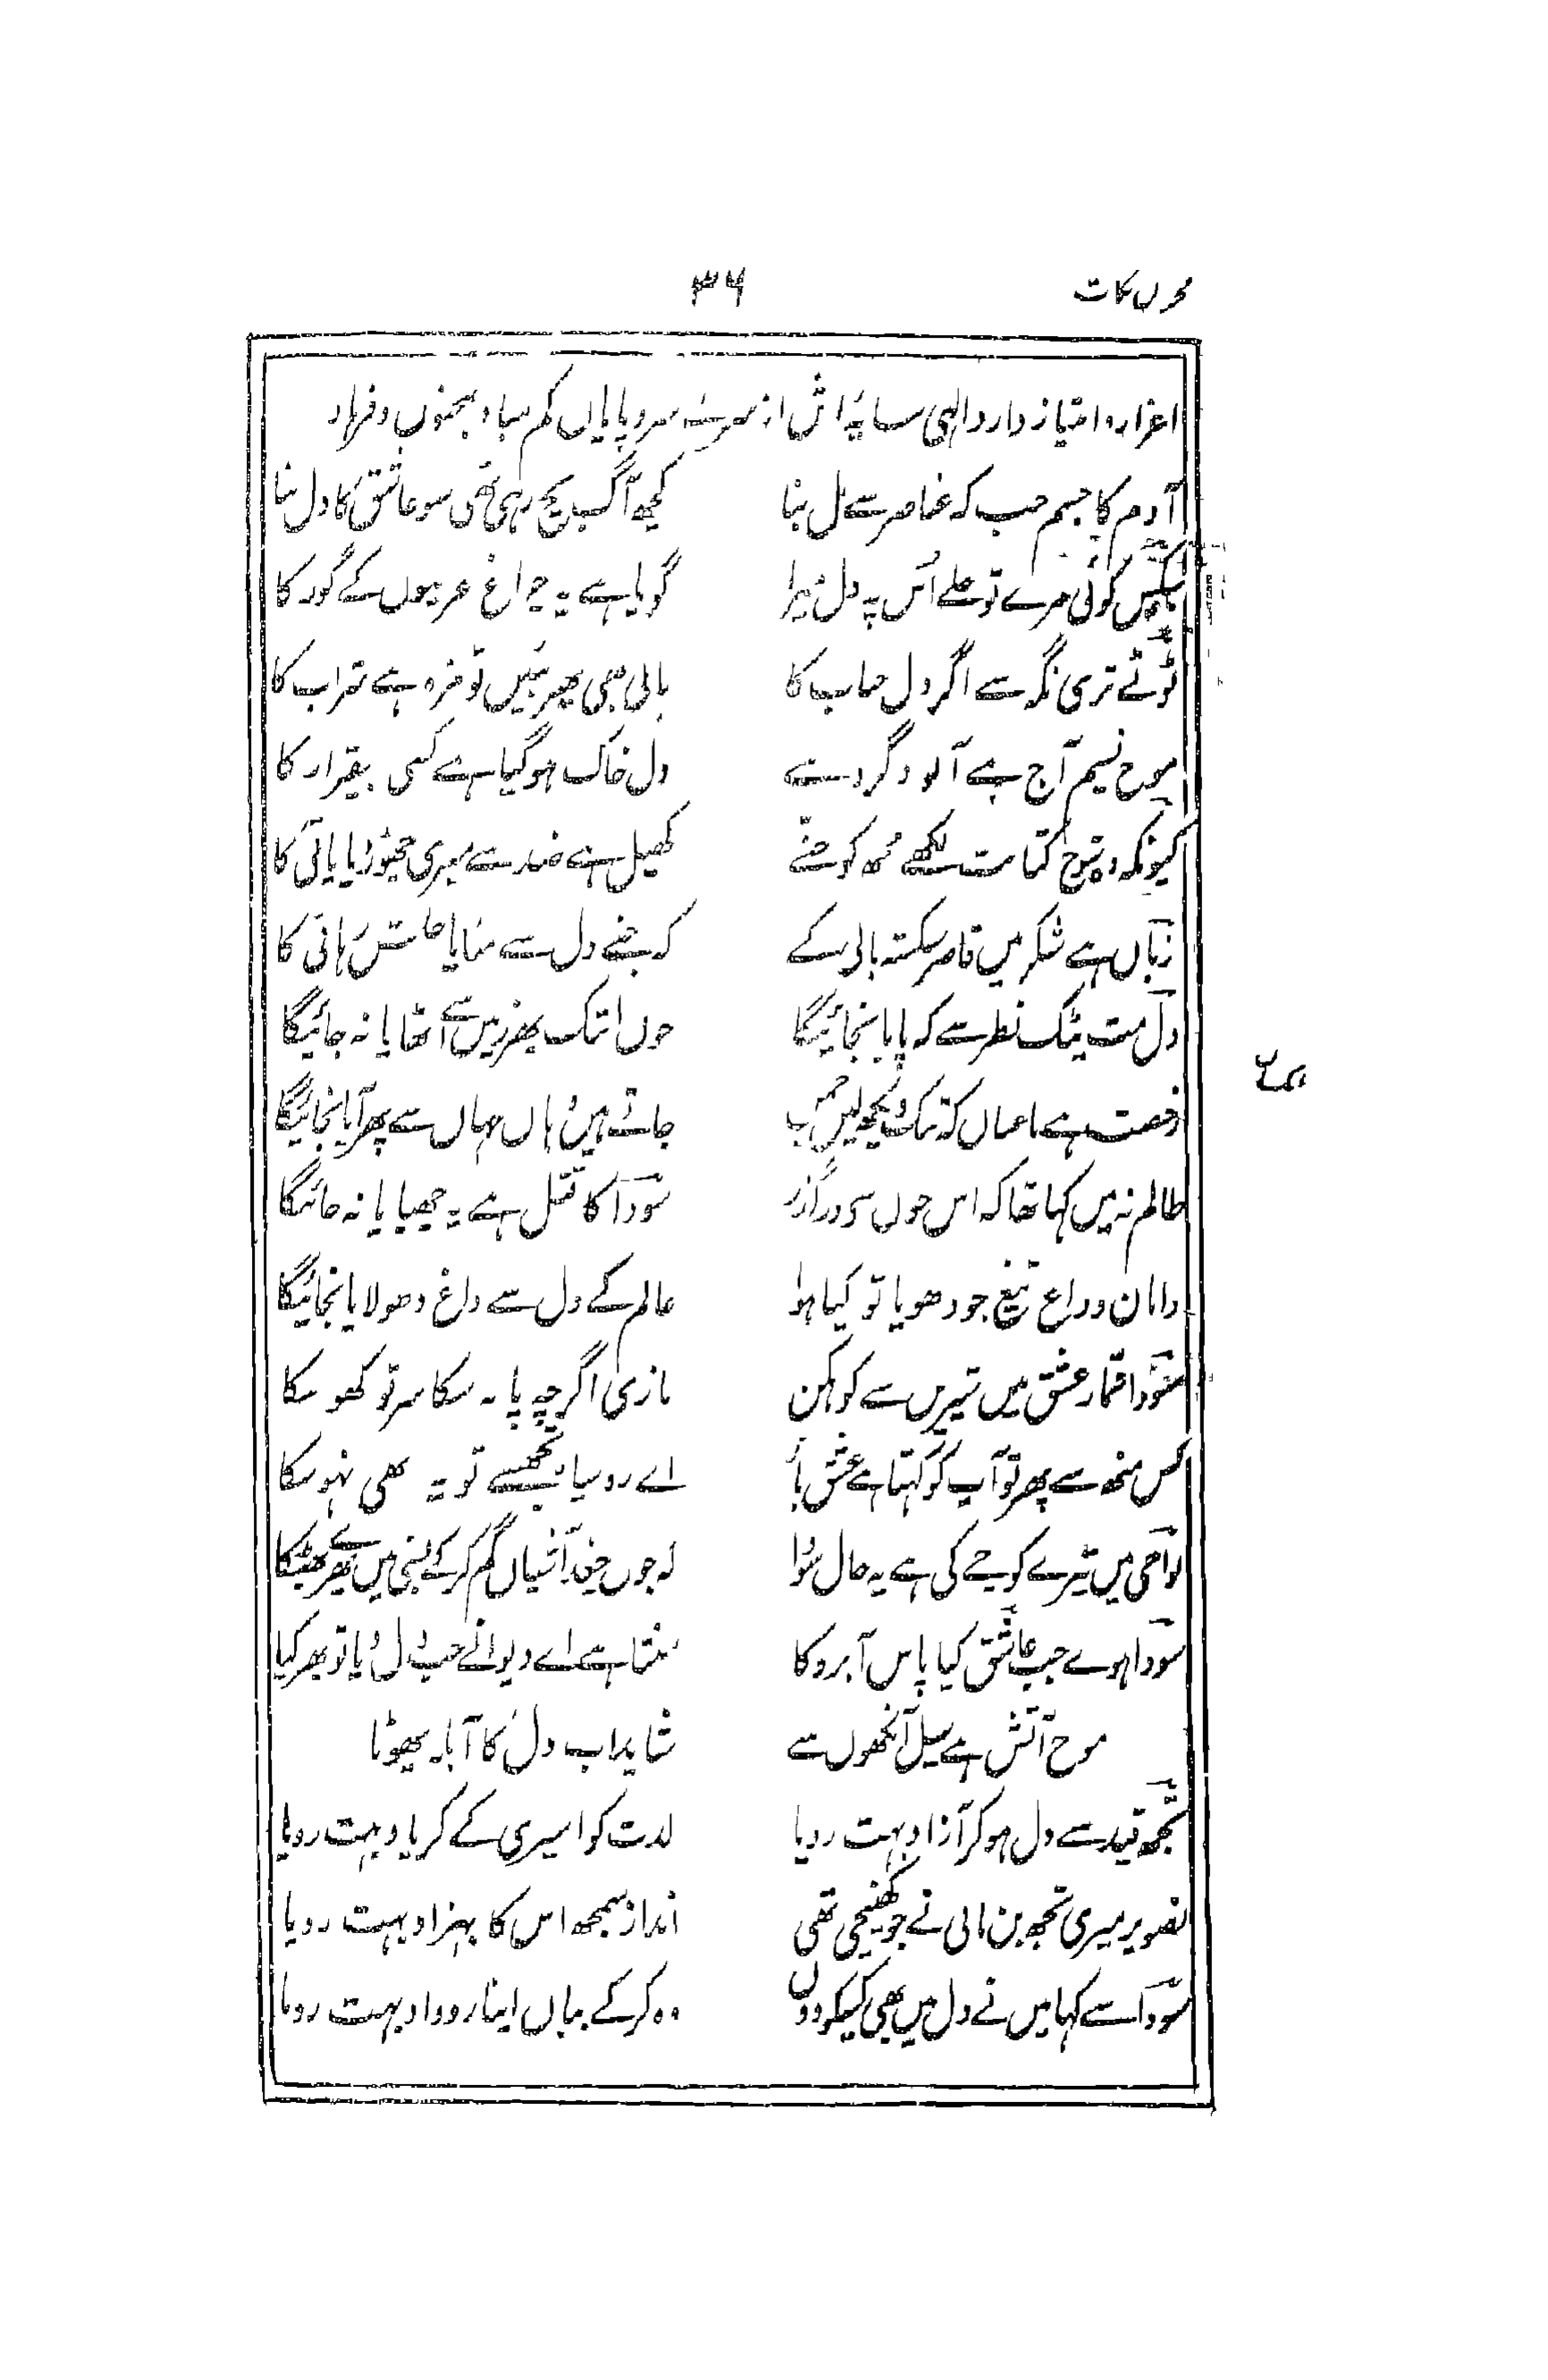 مخزن نکات ۳۶
اعزاز و امتیاز دارد الٰہی سایہ اش از سر بے سروپایاں کم مباد بمجنوں و فرہاد
آدم کا جسم جب کہ عناصر سے مل بنا کچھ آگ بچ رہی تھی سو عاشق کا دل بنا
کوئی مرے تو جلے اُس پہ دل میرا گویا ہے یہ چراغ غریبوں کے گور کا
ٹوٹے تری نگہ سے اگر دل حباب کا پانی بھی پھر پئیں تو مزہ ہے شراب کا
موج نسیم آج ہے آلودہ گرد سے دل خاک ہو گیا ہے کسی بیقرار کا
کیونکہ وہ شوخ کتابت لکھے مجھ کو جنے کھیل ہے ضد سے میری چھوڑیا پاتی کا
زباں ہے شکر میں قاصر شکستہ بالی کے کہ جنے دل سے مٹایا خلش رہائی کا
دل مت ٹپک نظر سے کہ پایا نجائیگا جوں اشک پھر زمیں سے اٹھایا نہ جائیگا
رخصت ہے باغباں کہ تک دیکھ لیں چمن جاتے ہیں وہاں جہاں سے پھر آیا نجائیگا
ظالم نہ میں کہا تھا کہ اس خوں سے درگزر سودا کا قتل ہے یہ چھپایا نہ جائیگا
دامان و داغ تیغ جو دھویا تو کیا ہوا عالم کے دل سے داغ دھولایا نجائیگا
سودا قمار عشق میں شیریں سے کوہکن بازی اگرچہ پا نہ سکا سر تو کھو سکا
کس منھ سے پھر تو آپ کو کہتا ہے عشق باز اے رو سیاہ تجھسے تو یہ بھی نہو سکا
نواحی میں تیرے کوچے کی ہے یہ حال سودا کہ جوں چغد آشیاں گم کر کے بستی میں پھرے بھٹکا
سودا ہوے جب عاشق کیا پاس آبرو کا سنتا ہے اے دیوانے جب دل دیا تو پھر کیا
موج آتش ہے سیل آنکھوں سے شاید اب دل کا آبلہ پھوٹا
تجھ قید سے دل ہو کر آزاد بہت رویا لذت کو اسیری کے کر یاد بہت رویا
تصویر میری تجھ بن مانی نے جو کھینچی تھی انداز سمجھ اس کا بہزاد بہت رویا
سودا سے کہا میں نے دل میں بھی کسیکو دوں وہ کر کے بیاں اپنا روداد بہت رویا